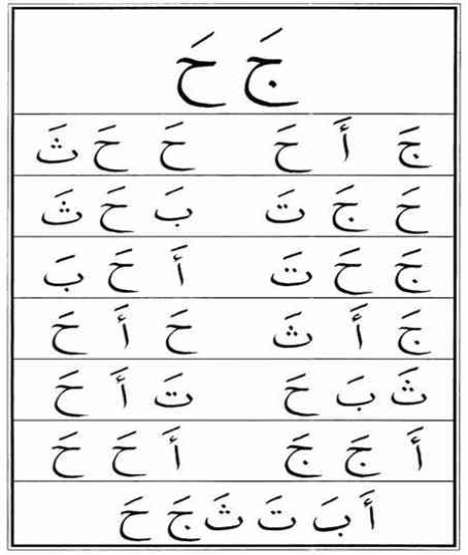 جَ حَ
جَ أَ حَ حَ حَ ثَ
حَ جَ تَ بَ حَ ثَ
جَ حَ تَ أَ حَ بَ
جَ أَ ثَ حَ أَ حَ
ثَ بَ حَ تَ أَ حَ
أَ جَ جَ أَ حَ حَ
أَ بَ تَ ثَ جَ حَ